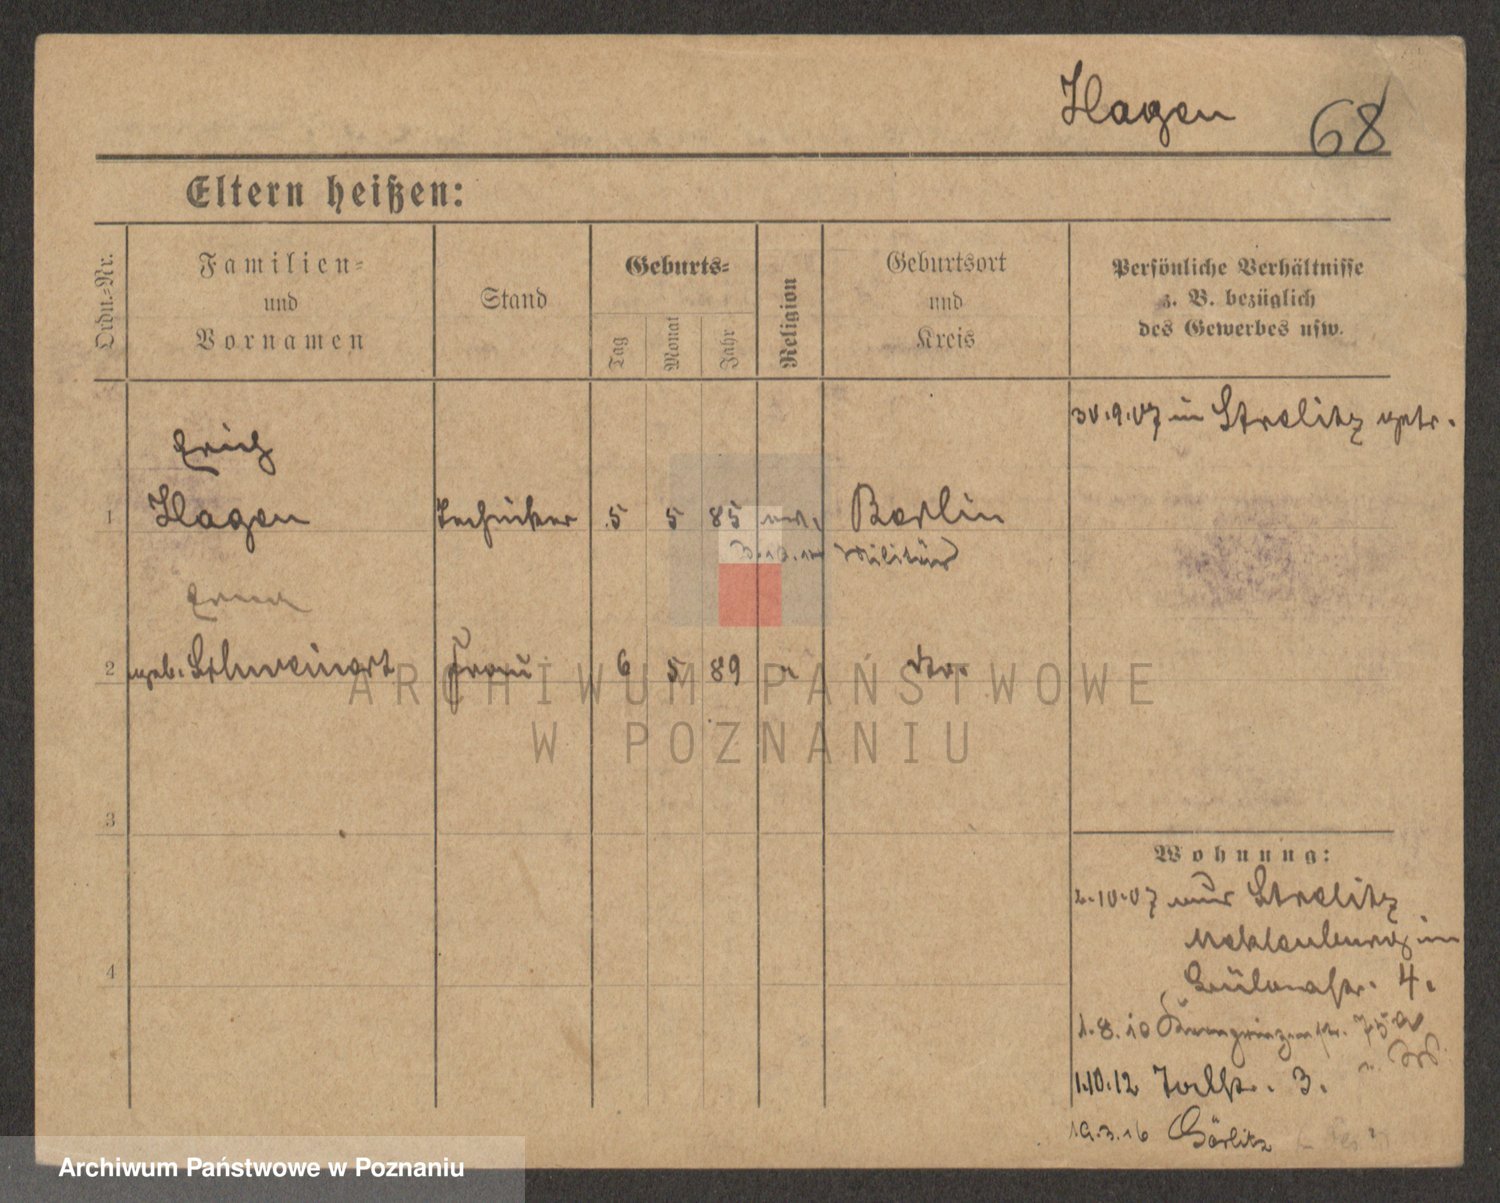 Hagen 68
Eltern heißen:
Ordn.-Nr.
Familien-
und
Vornamen
Stand
Geburts-
Tag
Monat
Jahr
Religion
Geburtsort
und
Kreis
Persönliche Verhältnisse
z. B. bezüglich
des Gewerbes usw.
30.9.07 in Strelitz getr.
Erich
1 Hagen Techniker 5 5 85 Berlin
Militär
2 geb. Frau 6 5 89
3
4
Wohnung:
2.10.07 Strelitz
4.
1.8.10 Kronprinzenstr.
1.10.12 Talstr. 3.
19.3.16 Görlitz
ARCHIWUM PAŃSTWOWE
W POZNANIU
Archiwum Państwowe w Poznaniu